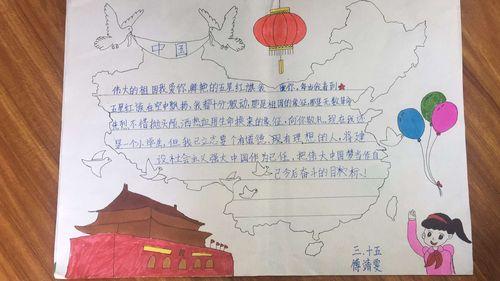 中国
伟大的祖国我爱你,鲜艳的五星红旗我爱你,每当我看到
五星红旗在空中飘扬,我都十分激动,那是祖国的象征,那是无数革命
先烈不惜抛头颅、洒热血用生命换来的象征,向你敬礼。现在我还
是一个小学生,但我已立志要个有道德、有理想的人,将建
设社会主义强大中国作为己任,把伟大中国梦当作自
己今后奋斗的目标!
三.十五
傅靖雯